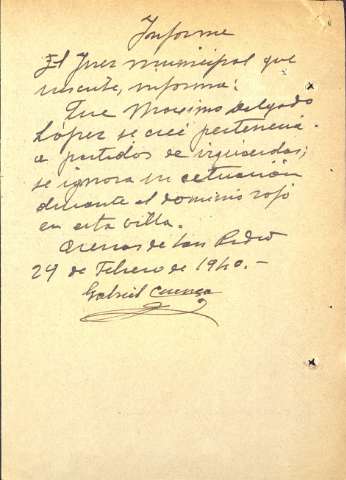 Informe
El Juez municipal que
suscribe, informa:
Que Maximo Delgado
López se creé pertenecia
a partidos de izquierdas;
se ignora su actuación
durante el dominio rojo
en esta villa.
Arenas de San Pedro
29 de Febrero de 1940.-
Gabriel Cuenca